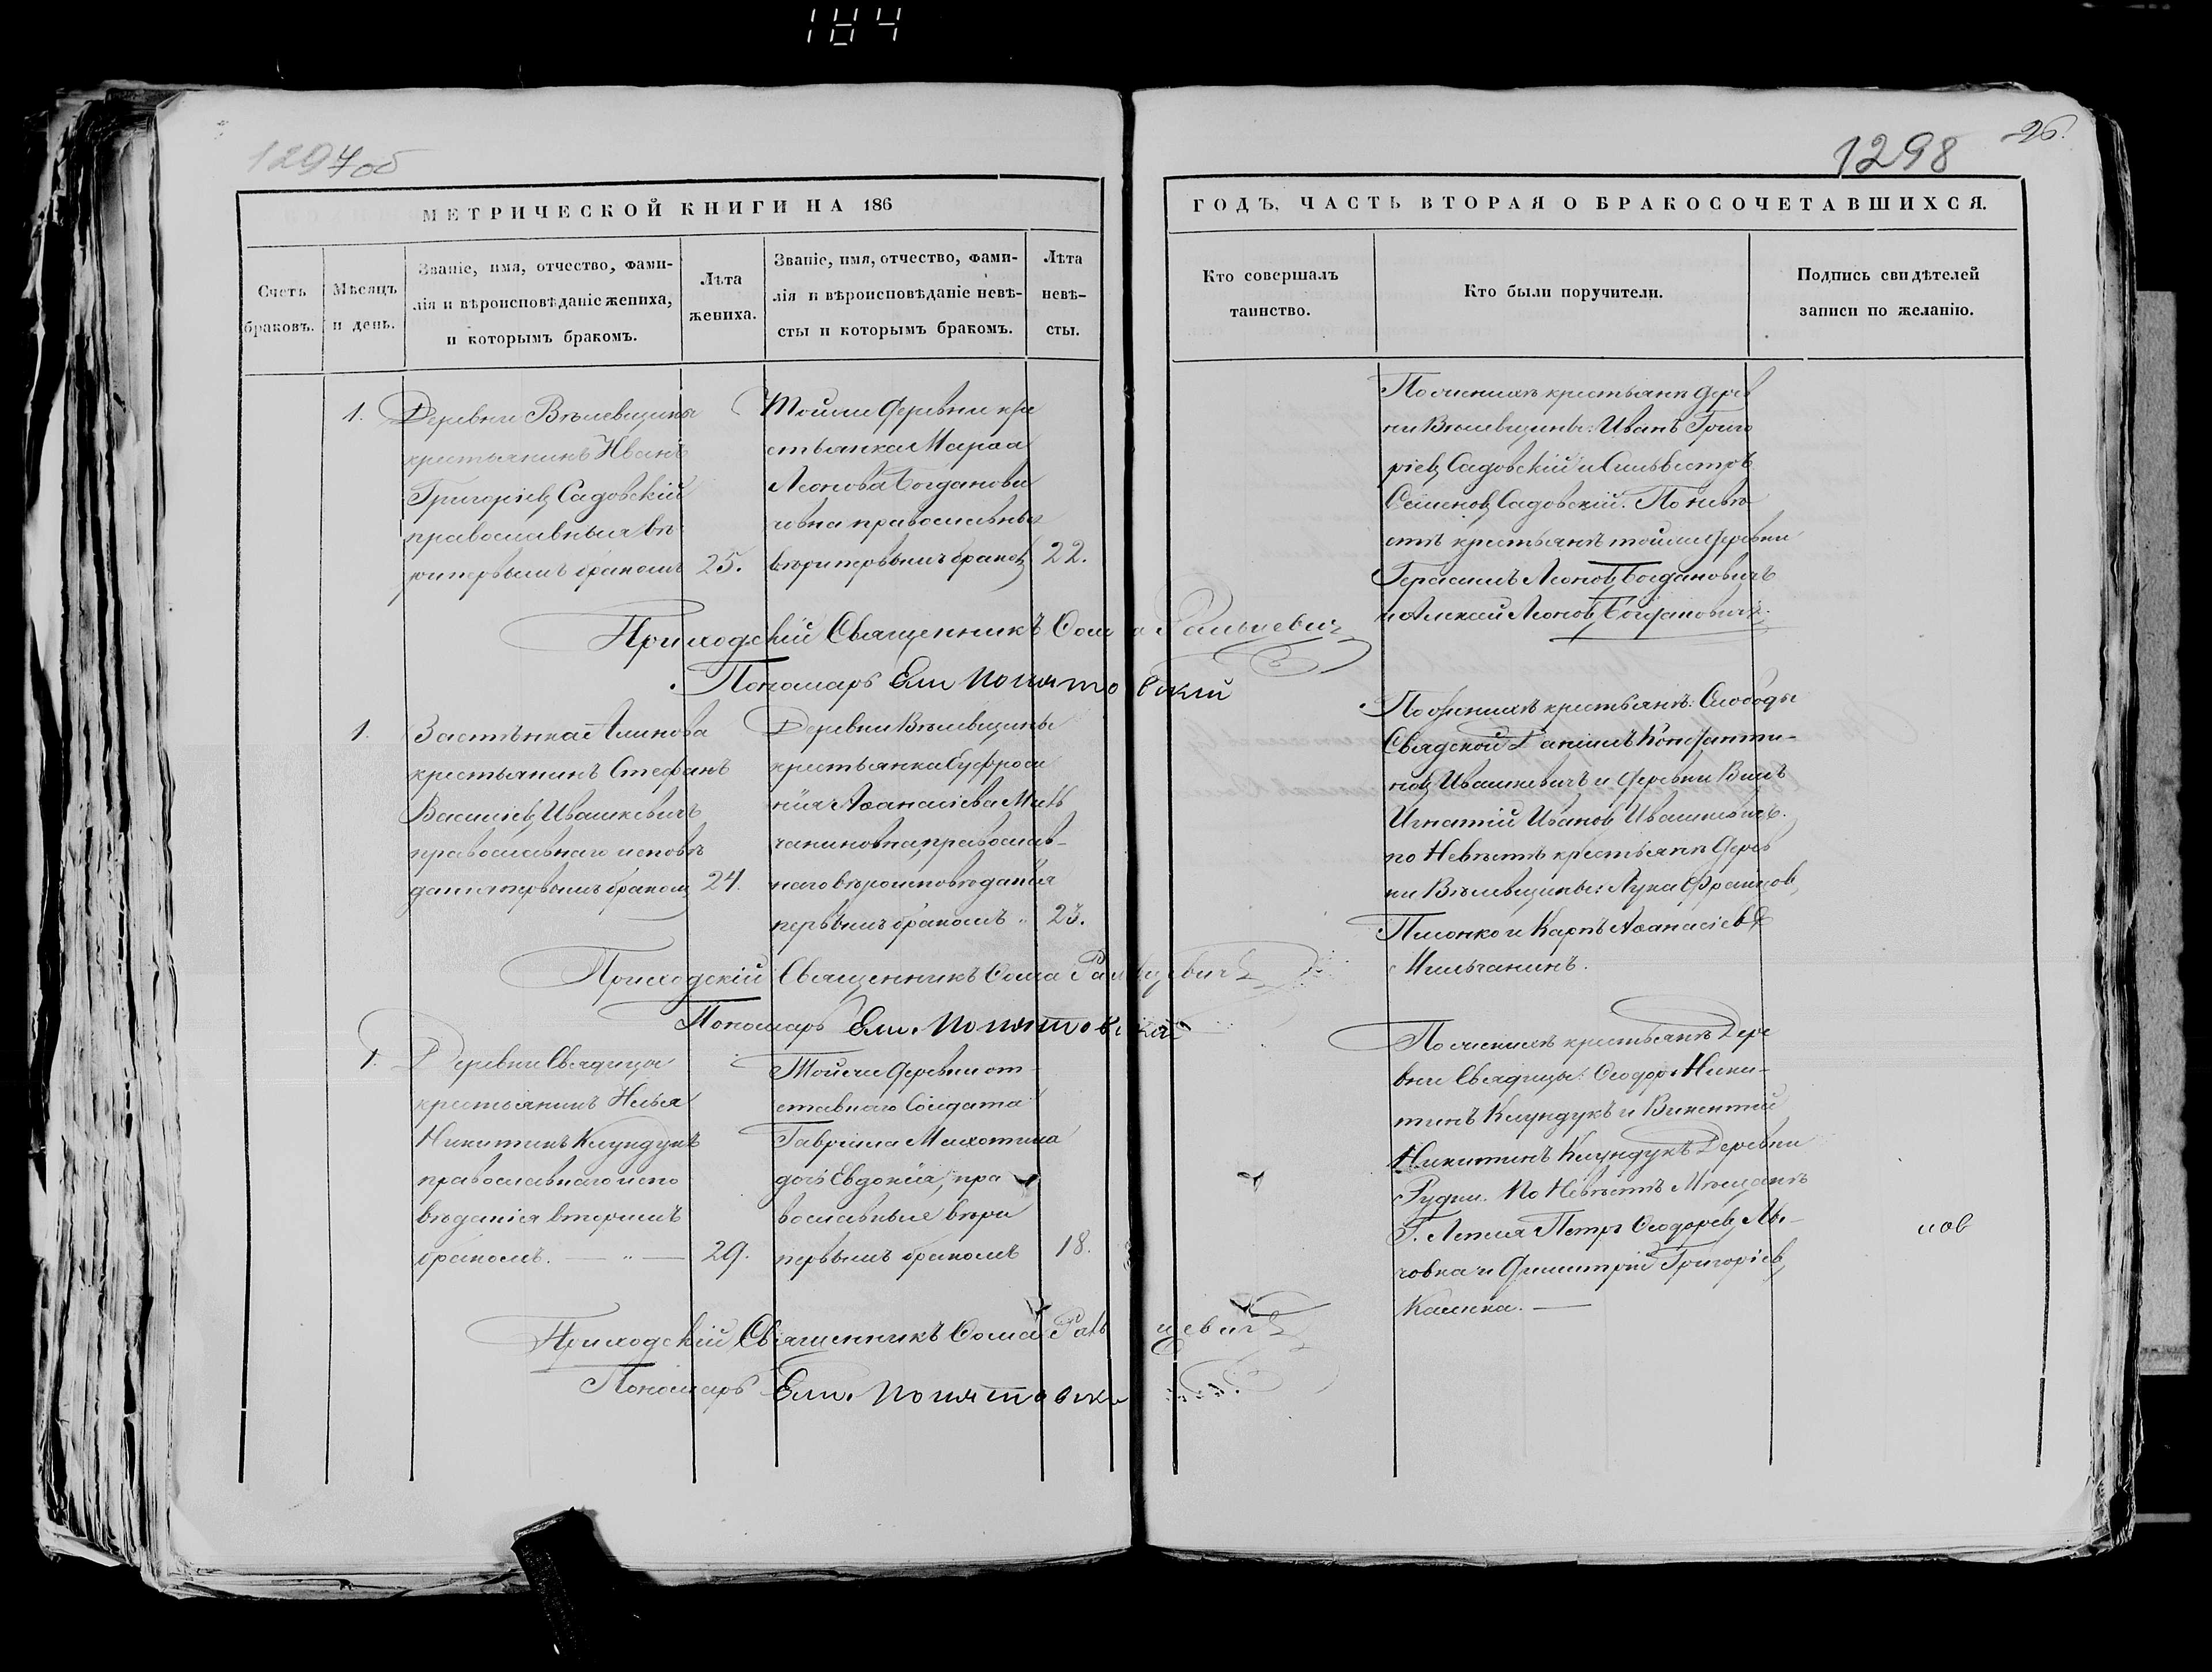 184
1297об
1298
26.
МЕТРИЧЕСКОЙ КНИГИ НА 186
ГОДЪ, ЧАСТЬ ВТОРАЯ О БРАКОСОЧЕТАВШИХСЯ.
Счетъ
браковъ.
Мѣсяцъ
и день.
Званіе, имя, отчество, фами-
лія и вѣроисповѣданіе жениха,
и которымъ бракомъ.
Лѣта
жениха.
Званіе, имя, отчество, фами-
лія и вѣроисповѣданіе невѣ-
сты и которымъ бракомъ.
Лѣта
невѣ-
сты.
Кто совершалъ
таинство.
Кто были поручители.
Подпись свидѣтелей
записи по желанію.
1.
Деревни Вѣлевщины
крестьянинъ Иванъ
Григоріевъ Садовскій
православныя вѣ
ры первымъ бракомъ
25.
Тойже деревни кре
стьянка Марѳа
Леонова Богданови
чевна православныя
вѣры первымъ бракомъ
22.
По женихѣ крестьяне дерев
ни Вѣлевщины: Иванъ Григо
ріевъ Садовскій и Сильвестръ
Семеновъ Садовскій. По невѣ
стѣ крестьяне тойже деревни
Герасимъ Леоновъ Богдановичъ
и Алексѣй Леоновъ Богдановичъ.
Приходскій Священникъ Ѳома Ральцевичъ
Пономарь Ем. Понятовскій
1.
Застѣнка
крестьянинъ Стефанъ
Василіевъ Ивашкевичъ
православнаго исповѣ
данія первымъ бракомъ
24.
Деревни Вѣлевщины
крестьянка Еуфроси
нія Аѳанасіева Миль
чаниновна, православ-
наго вѣроисповѣданія
первымъ бракомъ
23.
По женихѣ крестьяне: Слободы
Свядской Даніилъ Константи-
новъ Ивашкевичъ и деревни
Игнатій Ивановъ Ивашкевичъ.
по Невѣстѣ крестьяне дерев
ни Вѣлевщины: Лука Францовъ
и Карпъ Аѳанасіевъ
Мильчанинъ.
Приходскій Священникъ Ѳома Ральцевичъ
Пономарь Ем. Понятовскій
1.
Деревни Свядица
крестьянинъ Илья
Никитинъ Клундукъ
православнаго испо
вѣданія вторымъ
бракомъ.
29.
Тойже деревни от-
ставнаго Солдата
Гавріила
дочь Евдокія, пра
вославныя вѣры
первымъ бракомъ
18.
По женихѣ крестьяне Дере
вни Свядицы: Ѳеодоръ Ники-
тинъ Клундукъ и Викентій
Никитинъ Клундукъ Деревни
Рудни. По Невѣстѣ Мѣщане
Г. Лепеля Петръ Ѳеодоревъ Лы-
човка и Димитрій Григоріевъ
Калинка.
нов
Приходскій Священникъ Ѳома Ральцевичъ
Пономарь Ем. Понятовскій